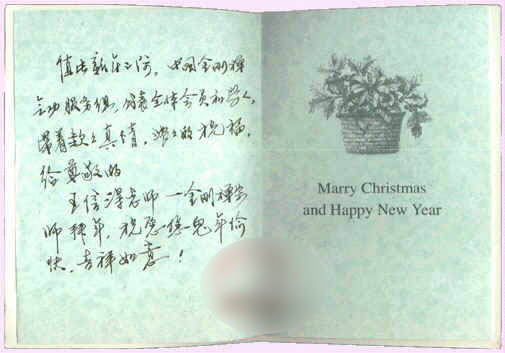 值此新年之际，中国金刚禅
功服务俱，代表全体会员和学人，
带着款款真情，浓浓的祝福，
给尊敬的
王信得老师一金刚禅宗
师拜年，祝您兔年愉
快，吉祥如意！
Marry Christmas
and Happy New Year